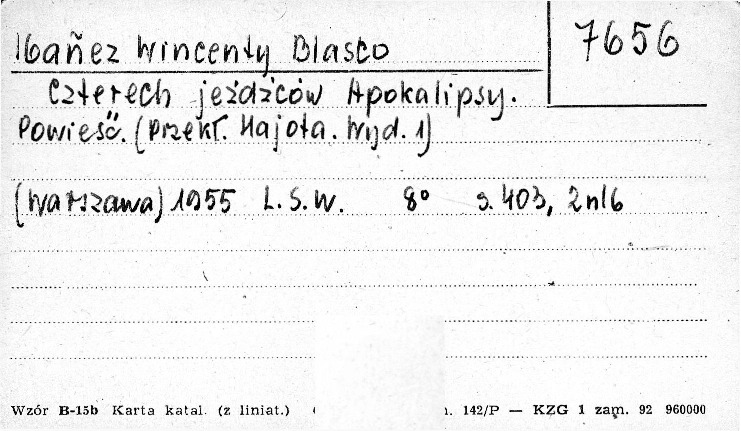 Ibañez Wincenty Blasco
7656
Czterech jeźdźców Apokalipsy.
Powieść. (Przekł. Hajota. Wyd. 1)
(Warszawa) 1955 L. S. W. 8° s. 403, 2nlb
Wzór B-15b Karta katal. (z liniat.) 142/P — KZG 1 zam. 92 960000